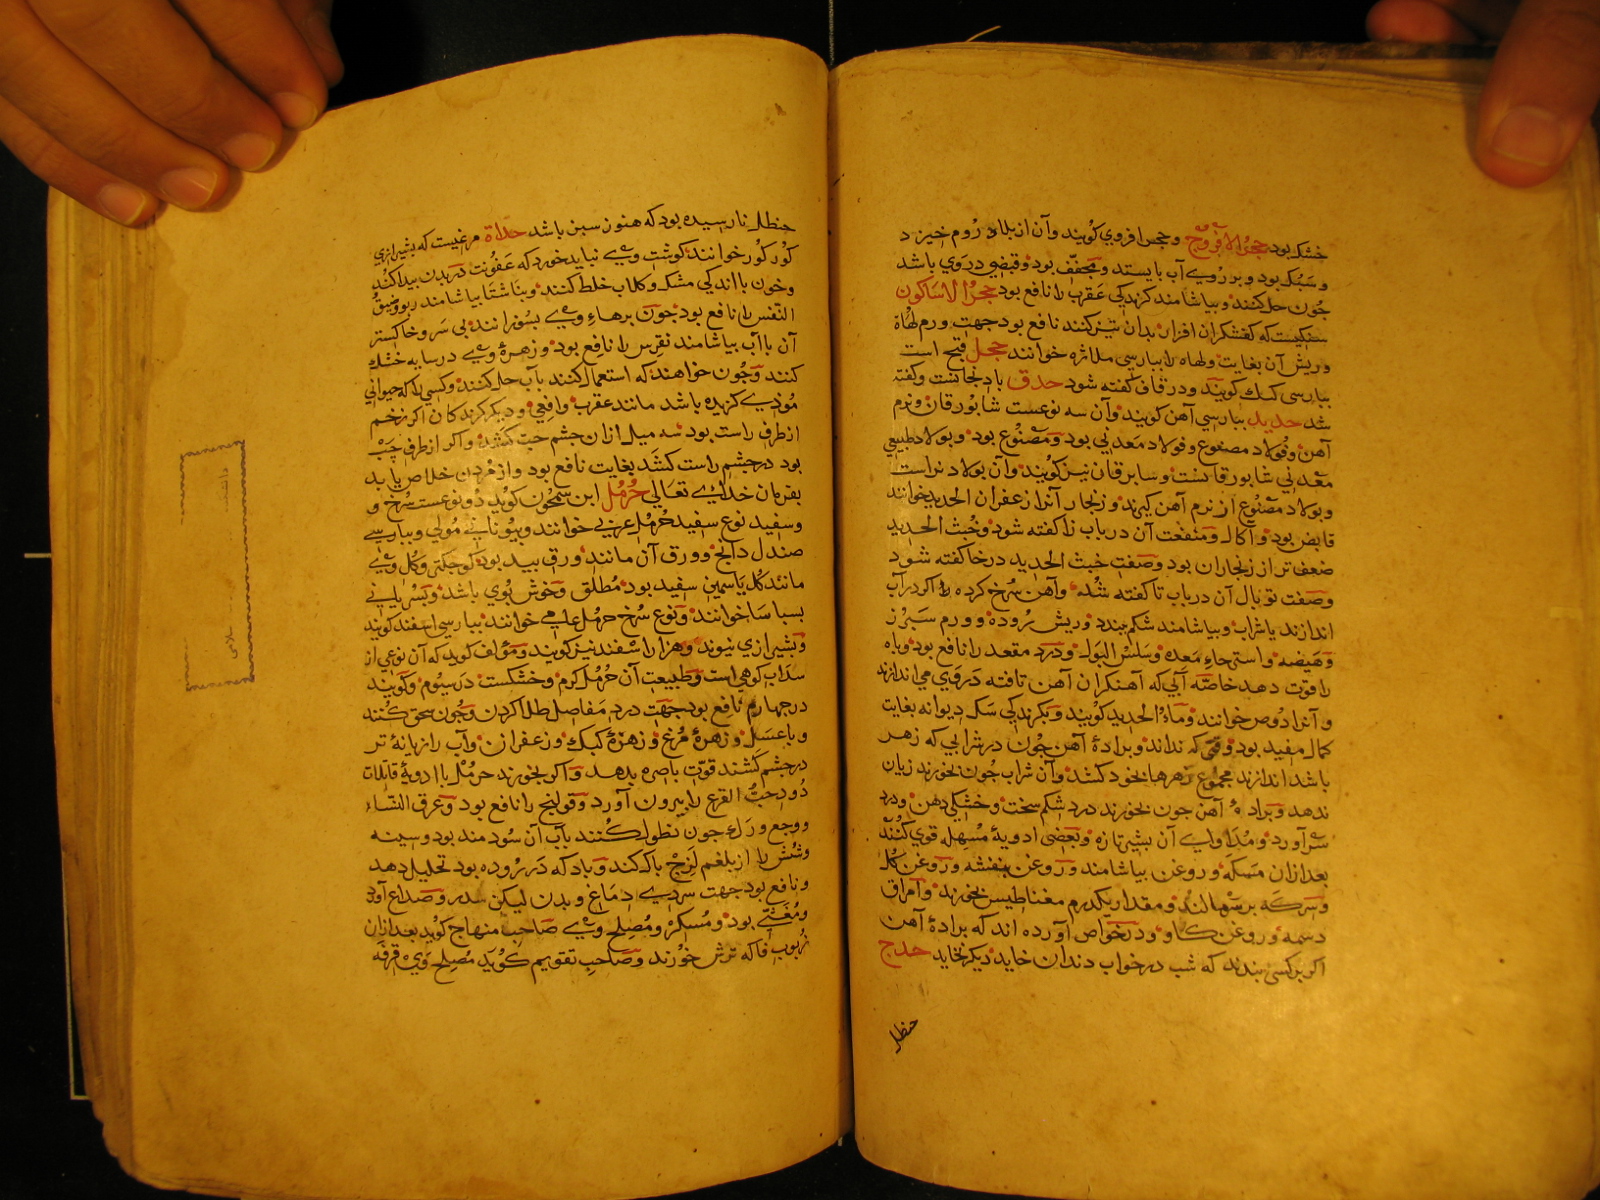 خشک بود حجر الافروج و حجر افروي کویند وآن از بلاد روم خیزد
و سبک بود و بر روي آب بایستد و مجفف بود و قبضي دروي باشد
چون حل کنند و بیاشامند کزیدکي عقرب را نافع بود حجر الاساکون
سنکیست که کفشکران افزار بدان تیز کنند نافع بود جهت ورم لهاة
وریش آن بغایت ولهاه را بپارسي ملازه خوانند حجل قبج است
بپارسي کبک کویند ودر قاف کفته شود حدق بادنجانست وکفته
شد حدید بپارسي آهن کویند وآن سه نوعست شابورقان ونرم
آهن وفولاد مصنوع وفولاد معدني بود ومصنوع بود وبولاد طبیعي
معدني شابورقانست وسابرقان نیز کویند وآن بولاد نراست
وبولاد مصنوع از نرم آهن کیرند وزنجار آنرا زعفران الحدید خوانند
قابض بود وآکال ومنفعت آن درباب زا کفته شود وخبث الحدید
ضعف تر از زنجاران بود وصفت خبث الحدید درخا کفته شود
وصفت توبال آن درباب تا کفته شد وآهن سرخ کرده را اکر درآب
اندازند یا شراب وبیاشامند شکم ببندد وریش روده وورم سبرز
وهیضه واسترخاء معده وسلس البول ودرد مقعد را نافع بود وباه
را قوت دهد خاصه آبي که آهنکران آهن تافته دروي مي اندازند
وآنرا دوص خوانند وماء الحدید کویند وبکزیدکي سک دیوانه بغایت
کمال مفید بود وقتي که نداند وبرادۀ آهن چون درشرابي که زهر
باشد اندازند مجموع زهرها بخود کشد وآن شراب چون بخورند زیان
ندهد وبرادۀ آهن چون بخورند درد شکم سخت وخشکي دهن ودرد
سر آورد ومداواي آن بشیر تازه وبعضي ادویۀ مسهله قوي کنند
بعدازان مسکه وروغن بیاشامند وروغن بنفشه وروغن کل
وسرکه برسرنهالند ومقدار یکدرم مغناطیس بخورند وامراق
دسمه وروغن کاو ودرخواص آورده اند که برادۀ آهن
اکر برکسي بندند که شب درخواب دندان خاید دیکر نخاید حدج
حنظل
حنظل نارسیده بود که هنوز سبز باشد حداة مرغیست که بشیرازي
کورکور خوانند کوشت وي نباید خورد که عفونت دربدن پیدا کند
وخون بااندکي مشک وکلاب خلط کنند وبناشتا بیاشامند ربو وضیق
النفس را نافع بود چون برهاء وي بسوزانند بي سر وخاکستر
آن باآب بیاشامند نقرس را نافع بود وزهرۀ وي درسایه خشک
کنند وچون خواهند که استعمال کنند بآب حل کنند وکسي را که حیواني
موذي کزیده باشد مانند عقرب وافعي ودیکر کزندکان اکر زخم
ازطرف راست بود سه میل ازان چشم چپ کشد واکر ازطرف چپ
بود درچشم راست کشد بغایت نافع بود وازمردن خلاص یابد
بفرمان خداي تعالي حرمل ابن سمحون کوید دونوعست سرخ و
وسفید نوع سفید حرمل عربي خوانند وبیوناني مولي وبپارسي
صندل دانج وورق آن مانند ورق بید بود کوچکتر وکل وي
مانند کل یاسمین سفید بود مطلق وخوش بوي باشد وبسریاني
بسباسا خوانند ونوع سرخ حرمل عامي خوانند بپارسي اسفند کویند
وبشیرازي نیوند وهزار اسفند نیز کویند ومؤلف کوید که آن نوعي از
سداب کوهي است وطبیعت آن حرمل کرم وخشکست درسیوم وکویند
درچهارم نافع بود جهت درد مفاصل طلا کردن وچون سحق کنند
وباعسل وزهرۀ مرغ وزهرۀ کبک وزعفران وآب رازیانۀ تر
درچشم کشند قوت باصره بدهد واکر بخورند حرمل باادویۀ قاتلات
دود حب القرع را بیرون آورد وقولنج را نافع بود وعرق النساء
ووجع ورک چون نطول کنند بآب آن سود مند بود وسینه
وشش را ازبلغم لزج پاک کند وباد که درروده بود تحلیل دهد
ونافع بود جهت سردي دماغ وبدن لیکن سدر وصداع آورد
ومغثي بود ومسکر ومصلح وي صاحب منهاج کوید بعدازان
ربوب فاکه ترش خورند وصاحب تقویم کوید مصلح وي قرفه